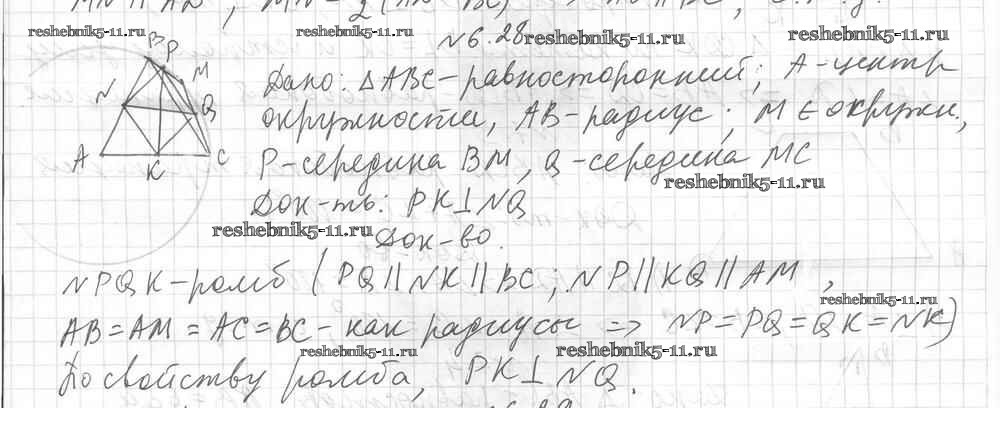 MN || AD, MN = 1/2 (AD - BC)
reshebnik5-11.ru
reshebnik5-11.ru
№6.28 reshebnik5-11.ru
reshebnik5-11.ru
B
P
M
N
Q
A
K
C
Дано: △ABC – равносторонний; A – центр
окружности, AB – радиус; M ∈ окружн.,
P – середина BM, Q – середина MC
reshebnik5-11.ru
Док-ть: PK ⊥ NQ
reshebnik5-11.ru
Док-во.
NPQK – ромб (PQ || NK || BC; NP || KQ || AM,
reshebnik5-11.ru
AB = AM = AC = BC – как радиусы => NP = PQ = QK = NK)
reshebnik5-11.ru
reshebnik5-11.ru
По свойству ромба, PK ⊥ NQ.